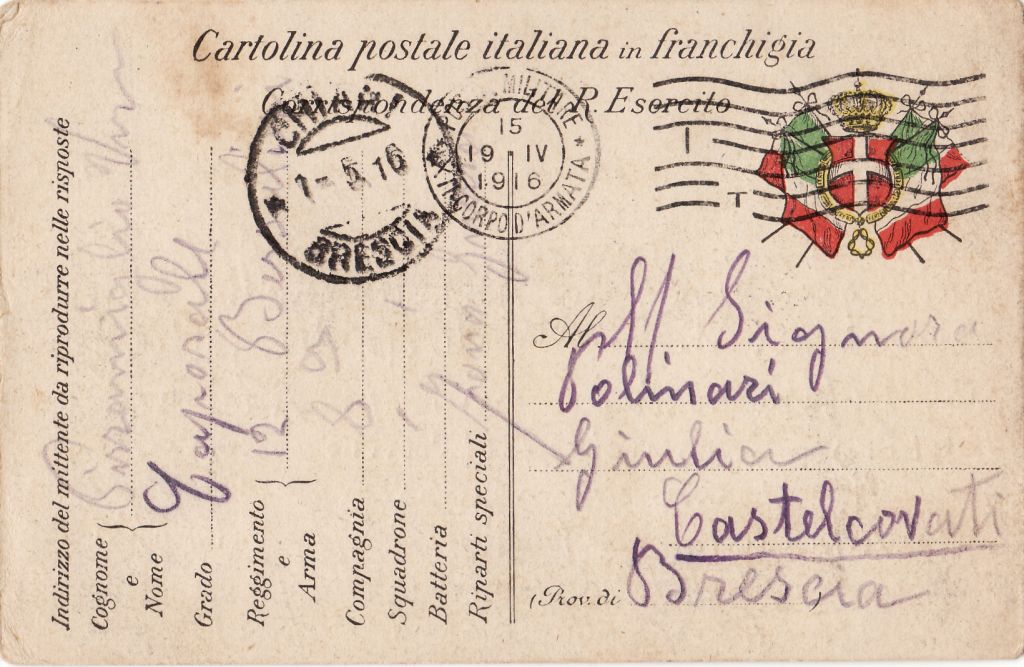 Cartolina postale italiana in franchigia
Corrispondenza del R. Esercito
CHIARI
1-5.16
BRESCIA
MILITARE
15
19 IV
1916
CORPO D'ARMATA
Indirizzo del mittente da riprodurre nelle risposte
Cognome e Nome
Grado Caporale
Reggimento e Arma 12
Compagnia 8
Squadrone
Batteria
Riparti speciali
Al Signora
Polinari
Giulia
Castelcovati
(Prov. di Brescia)